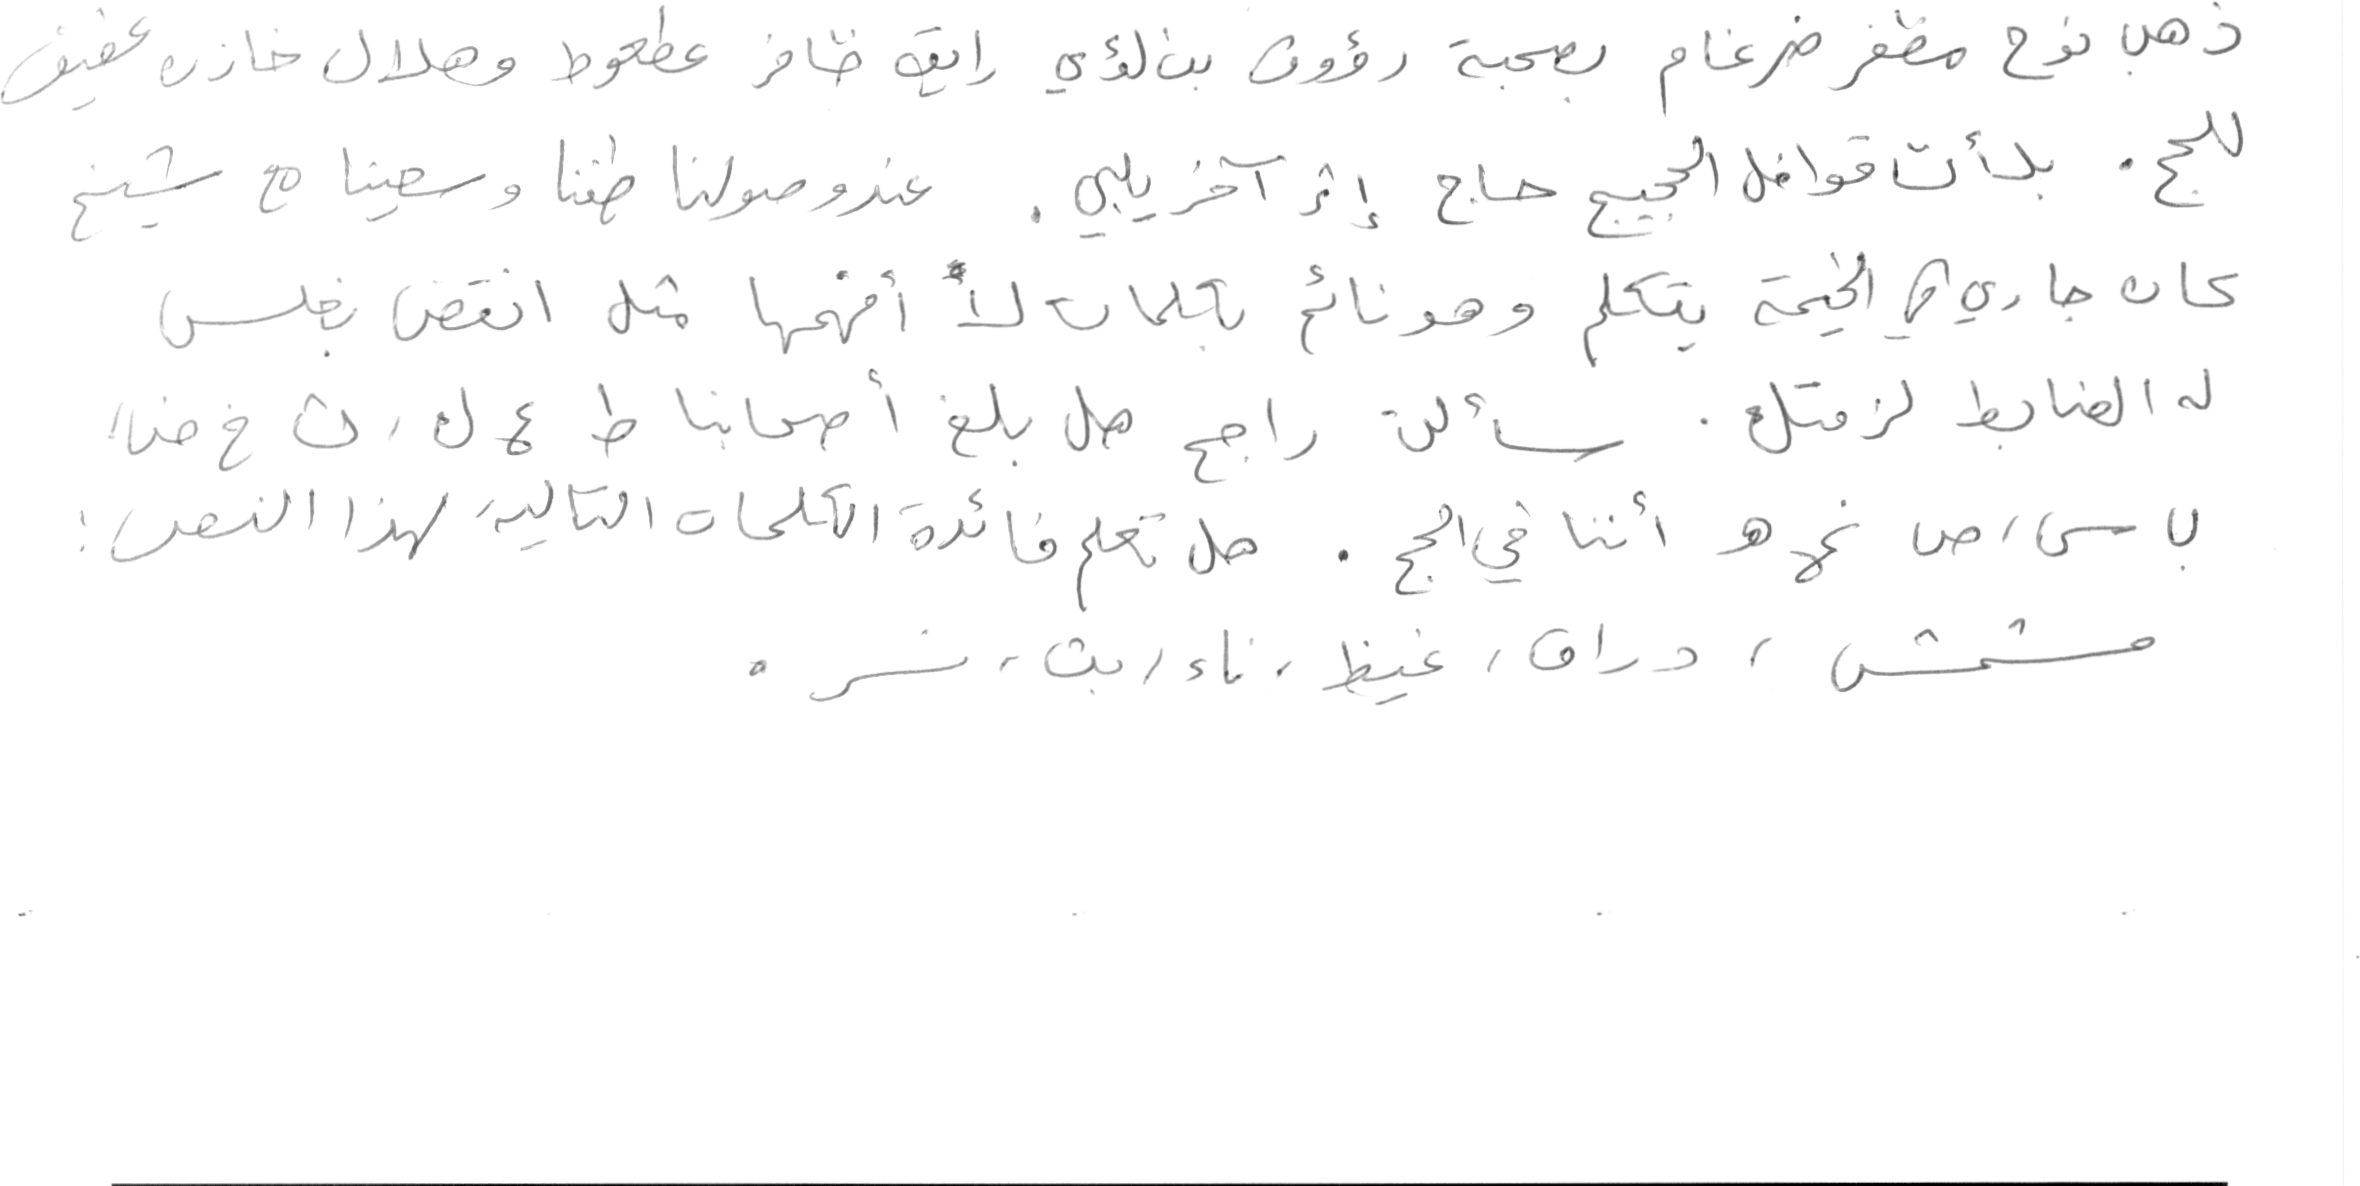 ذهب نوح مظفر ضرغام بصحبة رؤوف بن لؤي رايق ظافر عطعوط وهلال خازن عفيف
للحج. بدأت قوافل الحجيج حاج إثر آخر يلبي. عند وصولنا طفنا وسعينا مع شيخ
كان جاري في الخيمة يتكلم وهو نائم بكلمات لا أفهمها مثل انقض بغلس
له الضابط لزمتك. سألت راجح هل بلغ أصحابنا ط ع ك، ث خ ض،
ب س، ص نحو هـ أننا في الحج. هل تعلم فائدة الكلمات التالية لهذا النص:
مشمش، دراق، غيظ، ناء، بث، نسر.